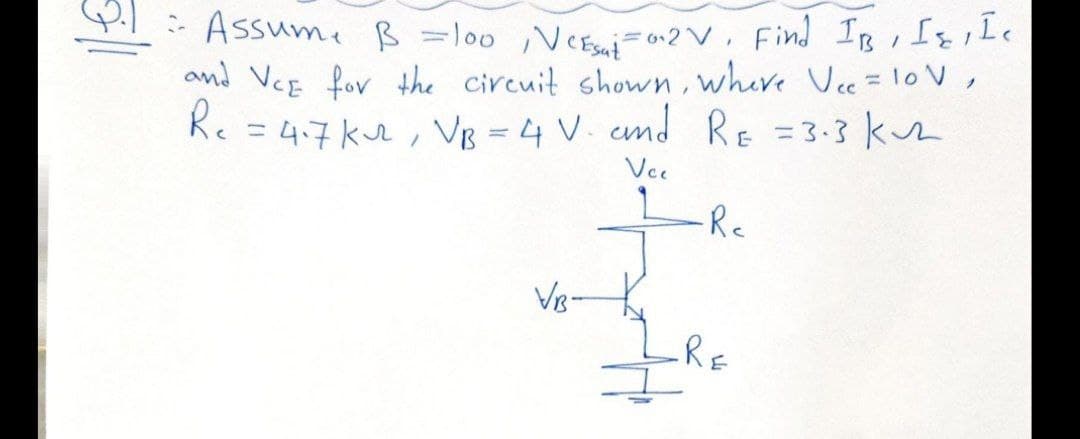 Q.1 :- Assume β = 100 , VCEsat = 0.2 V , Find IB , IE , Ic
and VCE for the circuit shown, where Vcc = 10 V ,
Rc = 4.7 kΩ , VB = 4 V. and RE = 3.3 kΩ
Vcc
Rc
VB
RE